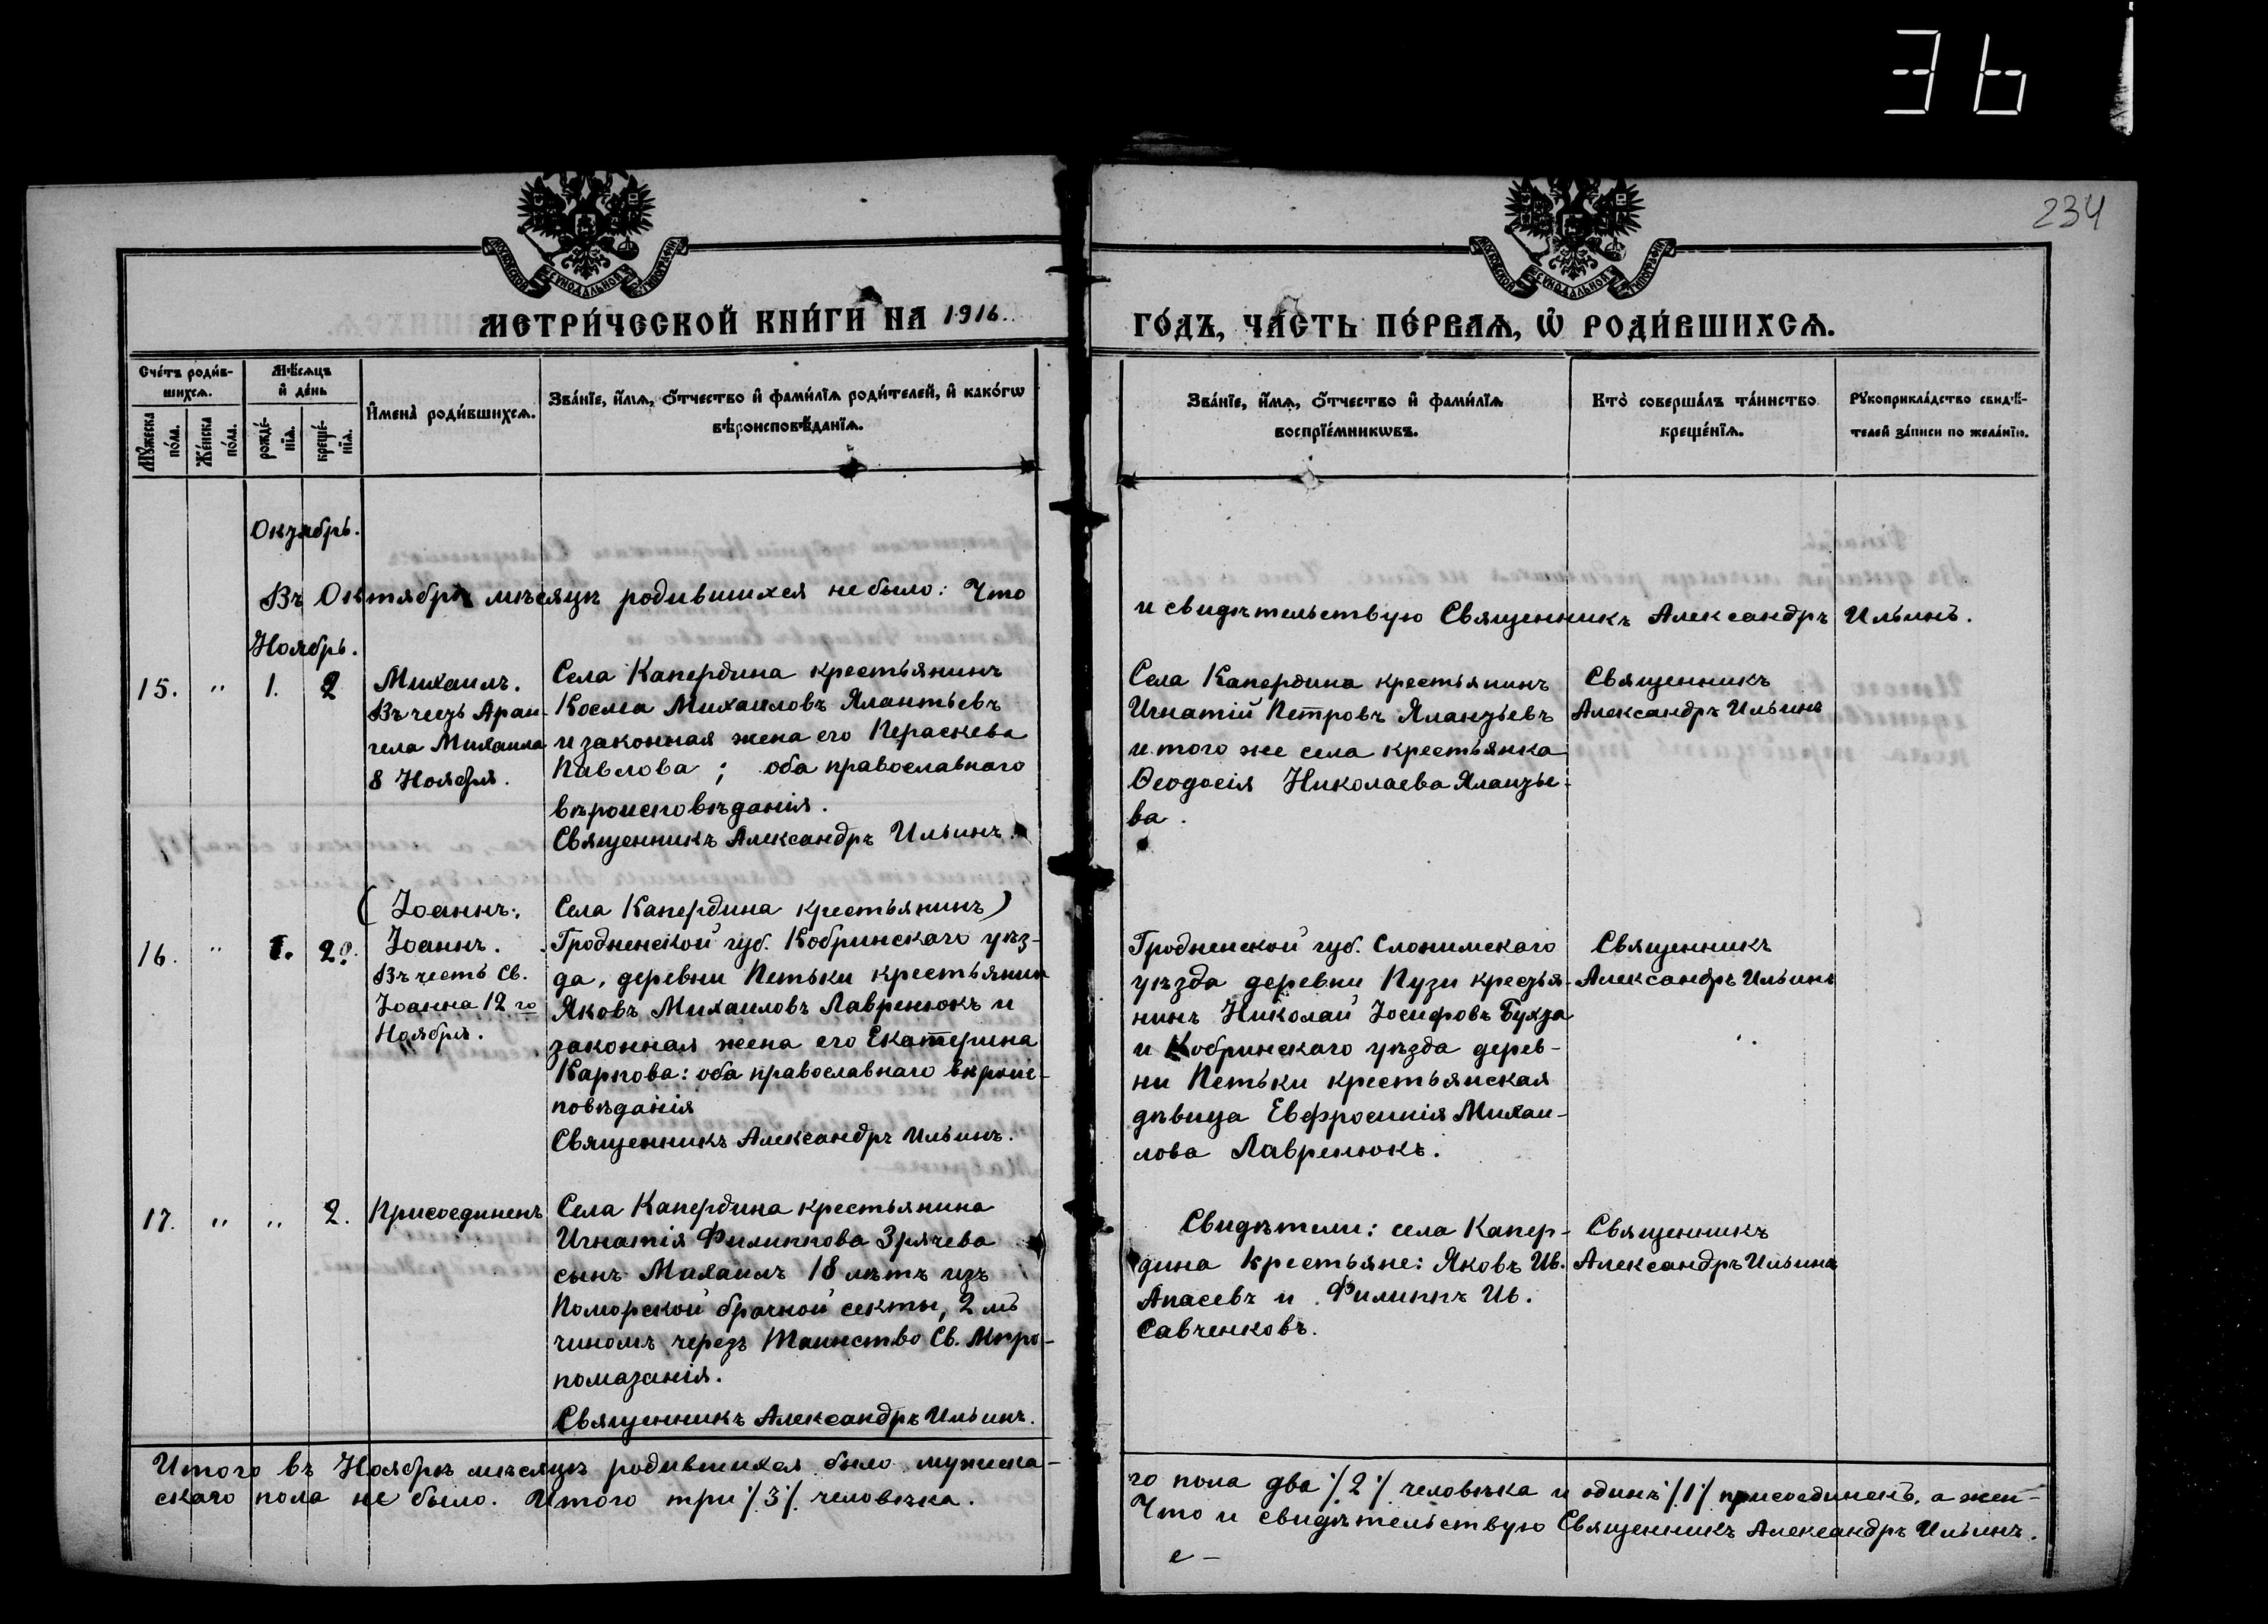 36
234
МОСКОВСКОЙ СѴНОДАЛЬНОЙ ТИПОГРАФІИ
МОСКОВСКОЙ СѴНОДАЛЬНОЙ ТИПОГРАФІИ
МЕТРИ́ЧЕСКОЙ КНИ́ГИ НА 1916.
ГО́ДЪ, ЧА́СТЬ ПЕ́РВАѦ, Ѽ РОДИ́ВШИХСѦ.
Сче́тъ роди́в-
шихсѧ.
Мꙋ́жеска по́ла.
Же́нска по́ла.
Мѣ́сѧцъ
и҆ де́нь
рожде́-
нїѧ.
креще́-
нїѧ.
И҆мена̀ роди́вшихсѧ.
Зва́нїе, и҆́мѧ, ѻ҆́тчество и҆ фами́лїѧ роди́телей, и҆ како́гѡ
вѣроисповѣ́данїѧ.
Зва́нїе, и҆́мѧ, ѻ҆́тчество и҆ фами́лїѧ
воспрїе́мникѡвъ.
Кто̀ соверша́лъ та́инство
креще́нїѧ.
Рꙋкоприкла́дство свидѣ́-
телей за́писи по жела́нїю.
Октябрь.
Въ Октябрѣ мѣсяцѣ родившихся не было: Что
и свидѣтельствую Священникъ Александръ Ильинъ.
Ноябрь.
15. " 1. 2
Михаилъ.
Въ честь Архан-
гела Михаила
8 Ноября.
Села Капердина крестьянинъ
Косма Михаиловъ Ялантьевъ
и законная жена его Пераскева
Павлова; оба православнаго
вѣроисповѣданія.
Священникъ Александръ Ильинъ.
Села Капердина крестьянинъ
Игнатій Петровъ Ялантьевъ
и того же села крестьянка
Ѳеодосія Николаева Ялантье-
ва.
Священникъ
Александръ Ильинъ
(Іоаннъ:
Села Капердина крестьянинъ)
16. " 1. 2.
Іоаннъ.
Въ честь Св.
Іоанна 12 го
Ноября.
Гродненской губ. Кобринскаго уѣз-
да, деревни Петьки крестьянин
Яковъ Михаиловъ Лавренюкъ и
законная жена его Екатерина
Карпова: оба православнаго вѣроис-
повѣданія
Священникъ Александръ Ильинъ.
Гродненской губ. Слонимскаго
уѣзда деревни Пузи крестья-
нинъ Николай Іосифовъ Бухта
и Кобринскаго уѣзда дерев-
ни Петьки крестьянская
дѣвица Евфросинія Михаи-
лова Лавренюкъ.
Священникъ
Александръ Ильинъ
17. " " 2.
Присоединенъ
Села Капердина крестьянина
Игнатія Филиппова Зрячева
сынъ Михаилъ 18 лѣтъ изъ
Поморской брачной секты, 2 мъ
чиномъ черезъ Таинство Св. Мѵро-
помазанія.
Священникъ Александръ Ильинъ.
Свидѣтели: села Капер-
дина крестьяне: Яковъ Ив.
Апасевъ и Филиппъ Ив.
Савченковъ.
Священникъ
Александръ Ильинъ
Итого въ Ноябрѣ мѣсяцѣ родившихся было мужска-
го пола два /2/ человѣка и одинъ /1/ присоединенъ, а жен-
скаго пола не было. Итого три /3/ человѣка.
Что и свидѣтельствую Священникъ Александръ Ильинъ.